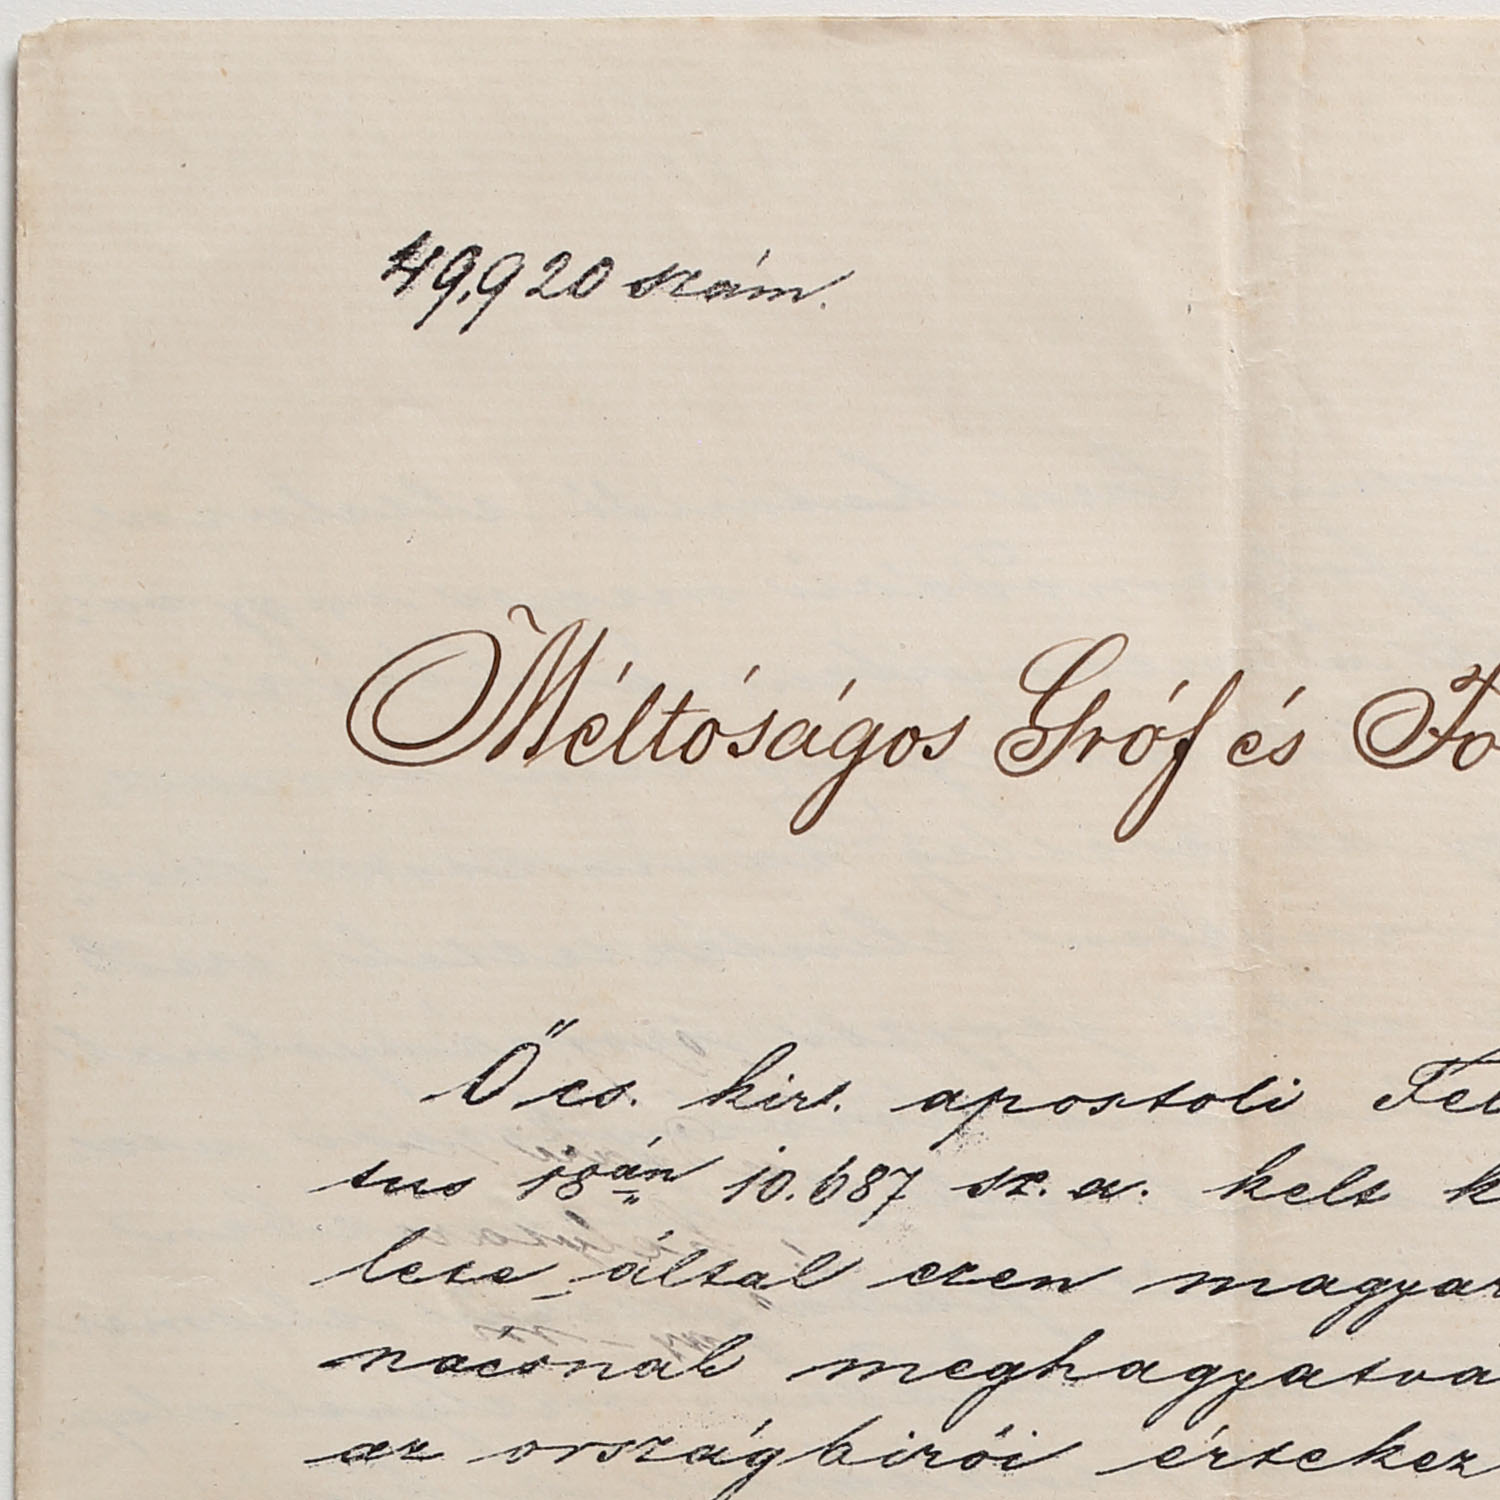 49,920 szám.
Méltóságos Gróf és Fő
Ő cs. kir. apostoli Fel
tus 18án 10.687 sz. a. kelt k
lete által ezen magyar
nácsnak meghagyatvá
az országbirói értekez